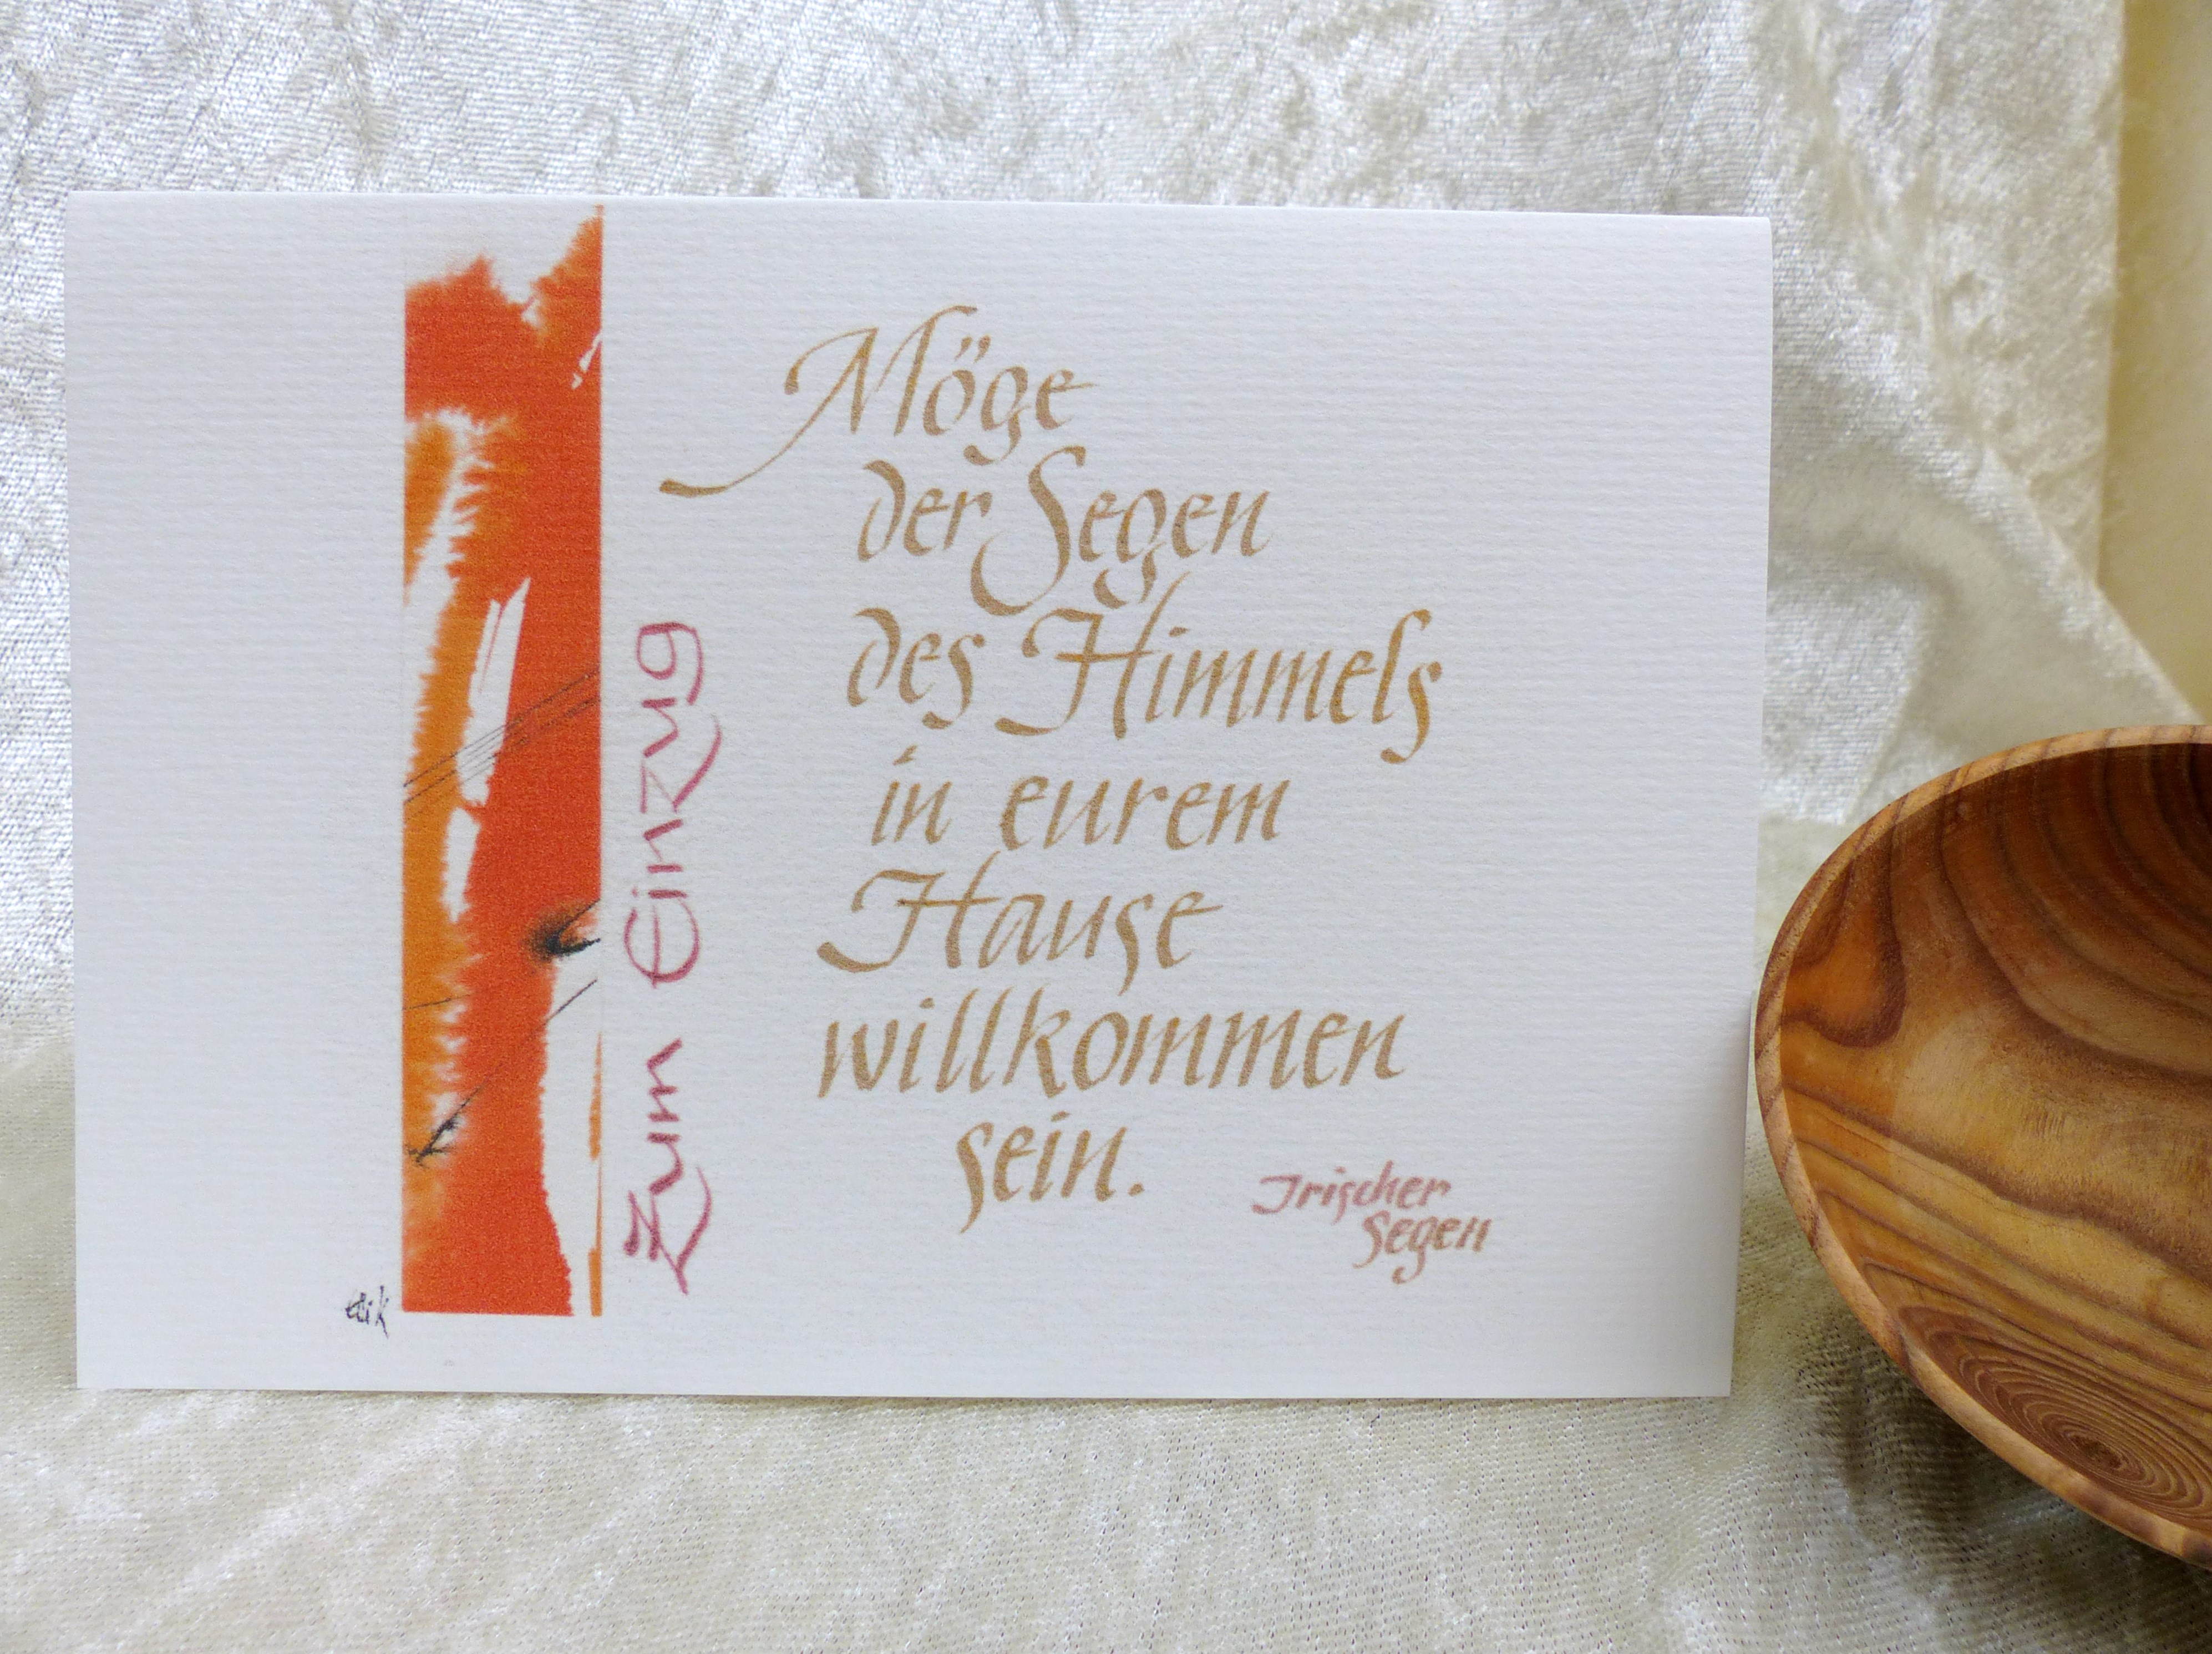 Zum Einzug
Möge
der Segen
des Himmels
in eurem
Hause
willkommen
sein.
Irischer
Segen